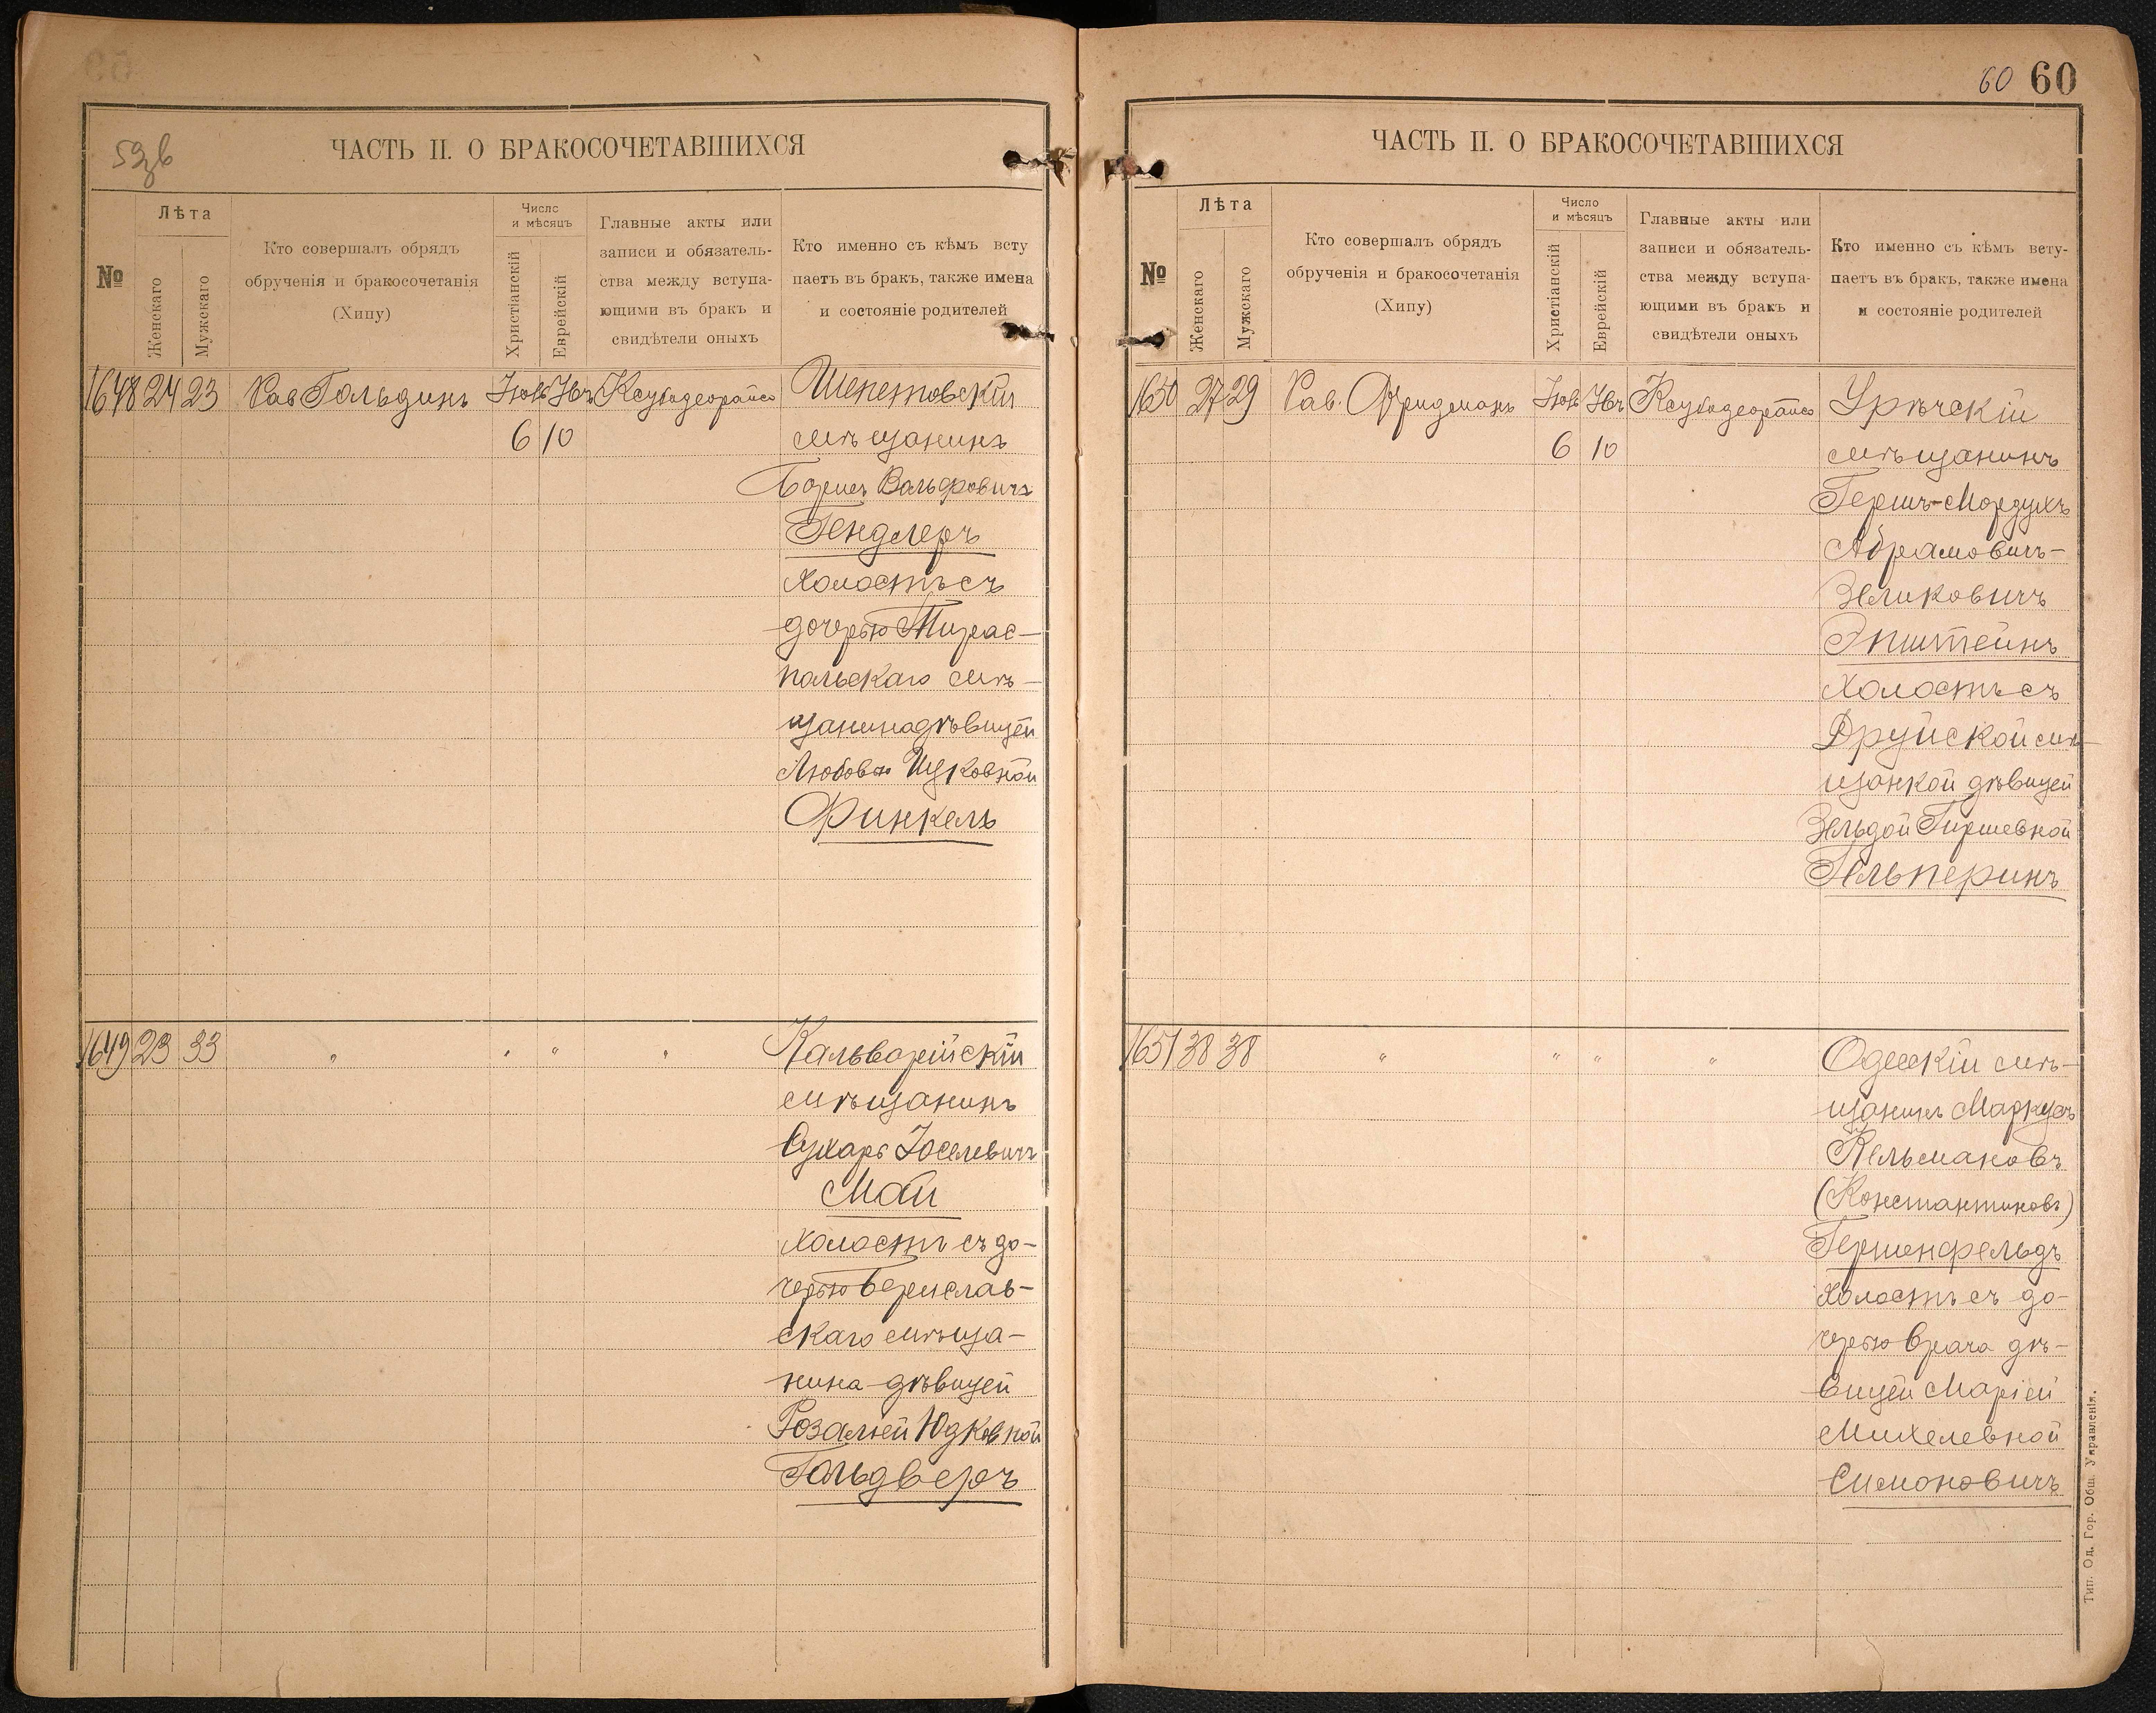 59зв
ЧАСТЬ II. О БРАКОСОЧЕТАВШИХСЯ
№
Лѣта
Женскаго
Мужскаго
Кто совершалъ обрядъ
обрученія и бракосочетанія
(Хипу)
Число
и мѣсяцъ
Христіанскій
Еврейскій
Главные акты или
записи и обязатель-
ства между вступа-
ющими въ бракъ и
свидѣтели оныхъ
Кто именно съ кѣмъ всту
паетъ въ бракъ, также имена
и состояніе родителей
1648 24 23 Рав Гольдинъ Ксубодеорайсо Шепетовскій
6 10 мѣщанинъ
Борисъ Вольфовичъ
Гендлеръ
холостъ съ
дочерью Тирас-
польскаго мѣ-
щанина дѣвицей
Любовью Ицковной
Финкель
1649 23 33 " " " " Кальварійскій
мѣщанинъ
Сухаръ Іоселевичъ
Май
холостъ съ до-
черью Берислав-
скаго мѣща-
нина дѣвицей
Розаліей Юдковной
Гольдверъ
60 60
ЧАСТЬ II. О БРАКОСОЧЕТАВШИХСЯ
№
Лѣта
Женскаго
Мужскаго
Кто совершалъ обрядъ
обрученія и бракосочетанія
(Хипу)
Число
и мѣсяцъ
Христіанскій
Еврейскій
Главные акты или
записи и обязатель-
ства между вступа-
ющими въ бракъ и
свидѣтели оныхъ
Кто именно съ кѣмъ всту-
паетъ въ бракъ, также имена
и состояніе родителей
1650 27 29 Рав. Фридманъ Ксубодеорайсо Урѣчскій
6 10 мѣщанинъ
Гершъ-Мордухъ
Абрамовичъ-
Зеликовичъ
Эпштейнъ
холостъ съ
Друйской мѣ-
щанкой дѣвицей
Зельдой Гиршевной
Гельперинъ
1651 38 38 " " " " Одесскій мѣ-
щанинъ Маркусъ
Кельмановъ
(Константиновъ)
Гершенфельдъ
холостъ съ до-
черью врача дѣ-
вицей Маріей
Михелевной
Симоновичъ
Тип. Од. Гор. Общ. Управленія.